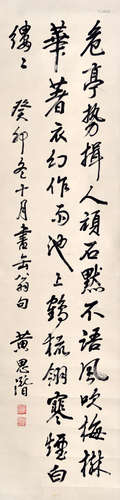 危亭勢揖人頑石默不語風吹梅樹
華著衣幻作雨池上鶴梳翎寒煙白
縷々 癸卯冬十月書缶翁句 黃思潛